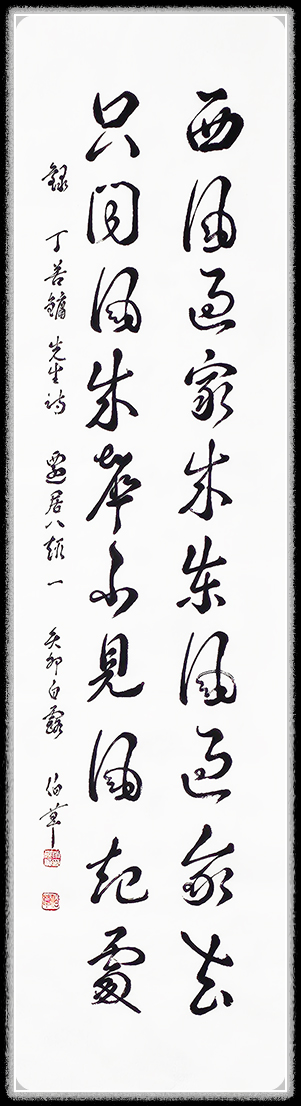 西風過家來東風過家去
只聞風來聲不見風起處
錄 丁善鏞 先生詩 遷居八題一 癸卯白露 伯